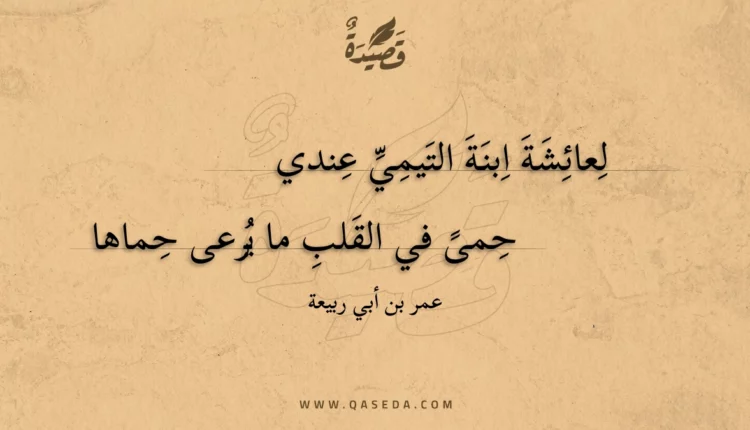 قَصِيدَةٌ
لِعائِشَةَ اِبنَةَ التَيمِيِّ عِندي
حِمىً في القَلبِ ما يُرعى حِماها
عمر بن أبي ربيعة
WWW.QASEDA.COM